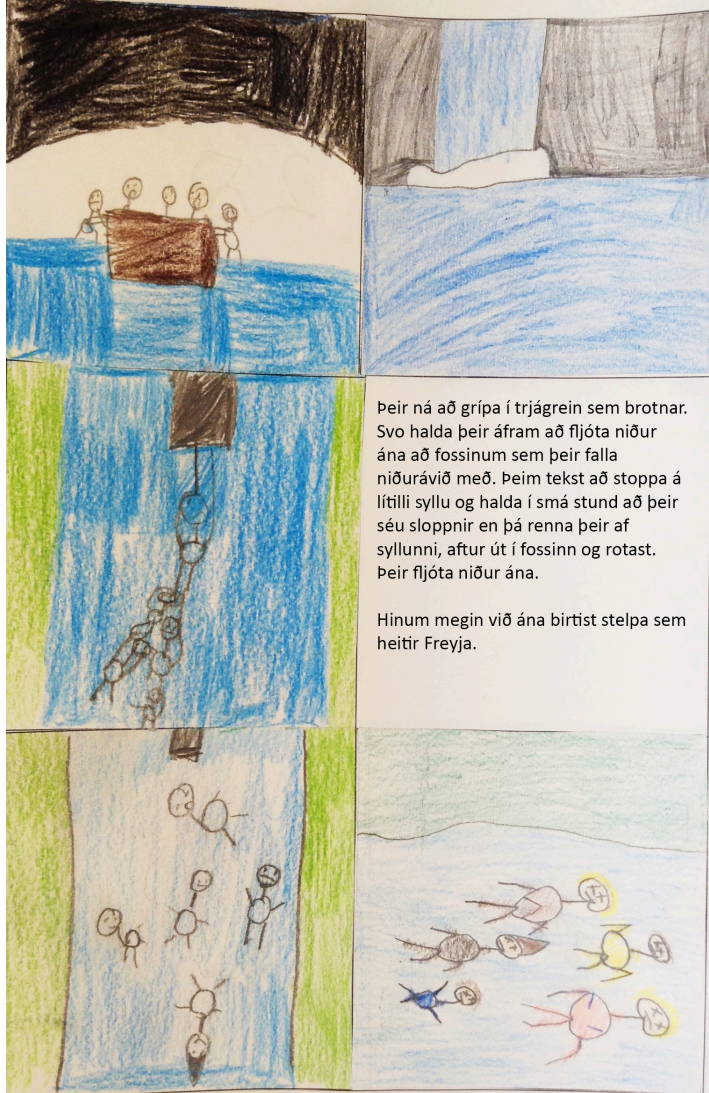 Þeir ná að grípa í trjágrein sem brotnar.
Svo halda þeir áfram að fljóta niður
ána að fossinum sem þeir falla
niðurávið með. Þeim tekst að stoppa á
lítilli syllu og halda í smá stund að þeir
séu sloppnir en þá renna þeir af
syllunni, aftur út í fossinn og rotast.
Þeir fljóta niður ána.
Hinum megin við ána birtist stelpa sem
heitir Freyja.